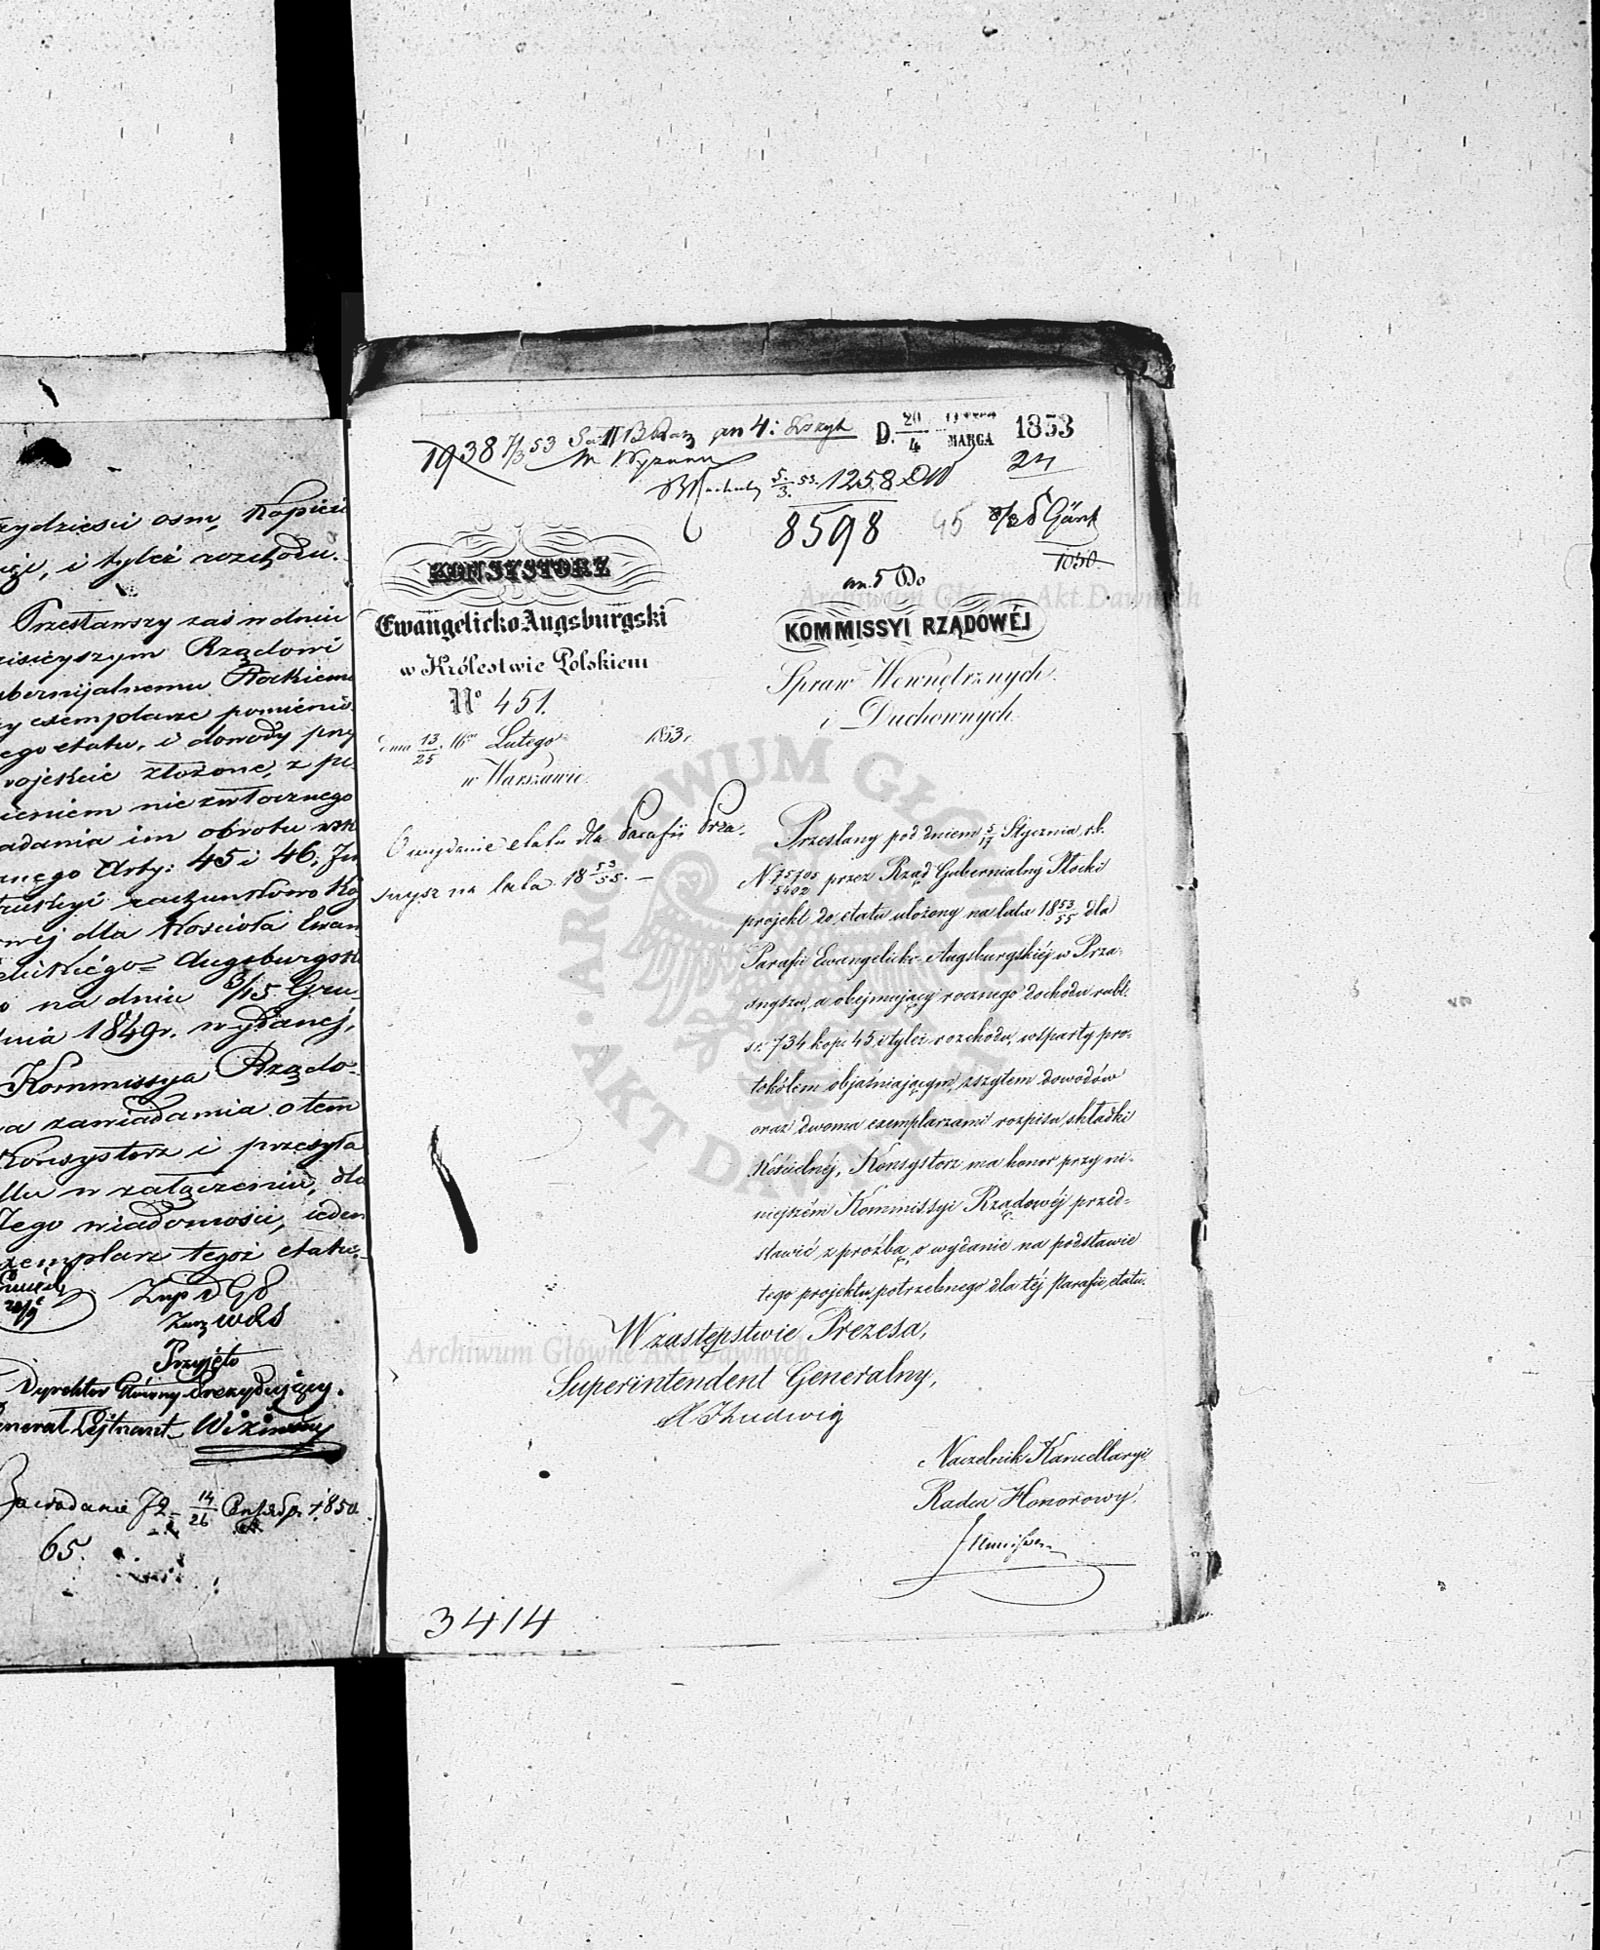 rzydzieści osm, Kopiei
i tyleż rozchodu.
Przesławszy zaś w dniu
dzisieyszym Rządowi
Gubernijalnemu Płockiemu
exemplarze pomienio
nego etatu, i dowody przy
projekcie złożone, z po
leceniem niezwłocznego
nadania im obrotu wska
zanego Arty: 45 i 46, In
strukcyi rachunkowo Ko
dla Kościoła Ewan
gelickiégo= Augsburgsk
na dniu 3/15 Gru
dnia 1849r. wydanej,
Kommissya Rządo-
wa zawiadamia o tem
Konsystorz i przesyła
Mu w załączeniu, dla
Jego wiadomości, ieden
exemplarz tegoż etatu.
Przyjęto
Dyrektor Główny Prezydujący.
General Lejtnant
14/26 1850.
65.
1938 7/3 53 an 4: D. 20/4 MARCA 1853
5/3. 53. 1258
8598 45
1050
an. 5 Do
KONSYSTORZ
Ewangelicko Augsburgski
w Królestwie Polskiem
No 451.
dnia 13/25 Lutego 1853r.
w Warszawie.
KOMMISSYI RZĄDOWÉJ
Spraw Wewnętrznych
i Duchownych.
O wydanie etatu dla Parafii Prza-
snysz na lata 18 53/55. —
Przesłany pod dniem 5/17 Stycznia r.b.
N 75705/5402 przez Rząd Gubernialny Płocki
projekt do etatu ułożony na lata 18 53/55 dla
Parafii Ewangelicko Augsburgskiéj w Prza-
snyszu, a obejmujący rocznego dochodu rubl.
sr. 734 kop. 45. i tyleż rozchodu, wsparty pro-
tokółem objaśniającym, zszytem dowodów
oraz dwoma exemplarzami rozpisu składki
Kościelnéj, Konsystorz ma honor przy ni-
niejszém Kommissyi Rządowéj przed-
stawić, z prośbą o wydanie na podstawie
tego projektu, potrzebnego dla téj Parafii, etatu.
W zastępstwie Prezesa,
Superintendent Generalny,
Ludwig
Naczelnik Kancellaryi
Radca Honorowy.
3414
Archiwum Główne Akt Dawnych
Archiwum Główne Akt Dawnych
ARCHIWUM GŁÓWNE • AKT DAWNYCH •